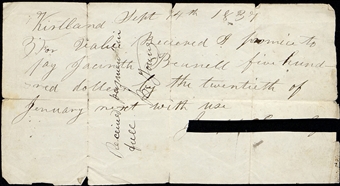 Kirtland Sept 24th 1837
For Value Received I promise to
pay Jacinth Bennett five hund
red dollars the twentieth of
January next with use
Received payment in
full